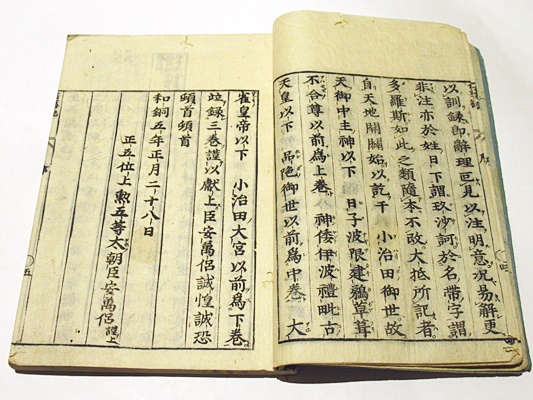 以訓錄即辭理叵見以注明意況易解更
非注亦於姓日下謂玖沙訶於名帶字謂
多羅斯如此之類隨本不改大抵所記者
自天地開闢始以訖于 小治田御世故
天御中主神以下 日子波限建鵜草葺
不合尊以前爲上卷 神倭伊波禮毗古
天皇以下 品陀御世以前爲中卷 大
雀皇帝以下 小治田大宮以前爲下卷
竝錄三卷謹以獻上臣安萬侶誠惶誠恐
頓首頓首
和銅五年正月二十八日
正五位上勲五等太朝臣安萬侶謹上
五